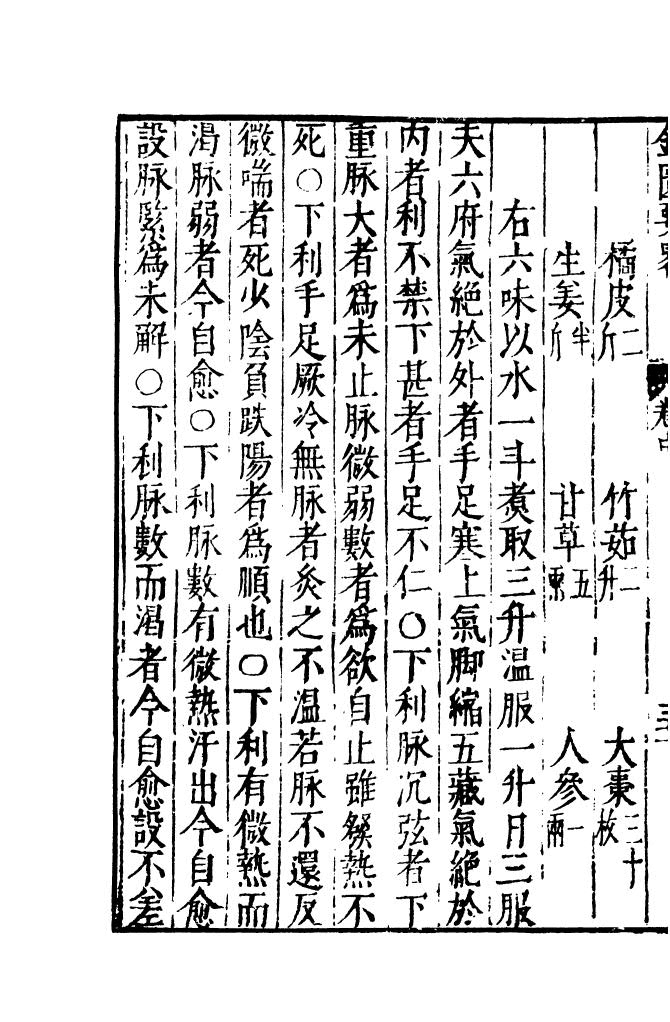 金匱要畧 卷中 三十一
橘皮二斤 竹茹二升 大棗三十枚
生姜半斤 甘草五兩 人參一兩
右六味以水一斗煑取三升温服一升日三服
夫六府氣絶於外者手足寒上氣脚縮五藏氣絶於
内者利不禁下甚者手足不仁〇下利脉沉弦者下
重脉大者爲未止脉微弱數者爲欲自止雖發熱不
死〇下利手足厥冷無脉者灸之不温若脉不還反
微喘者死少陰負趺陽者爲順也〇下利有微熱而
渴脉弱者今自愈〇下利脉數有微熱汗出今自愈
設脉緊爲未解〇下利脉數而渴者今自愈設不差